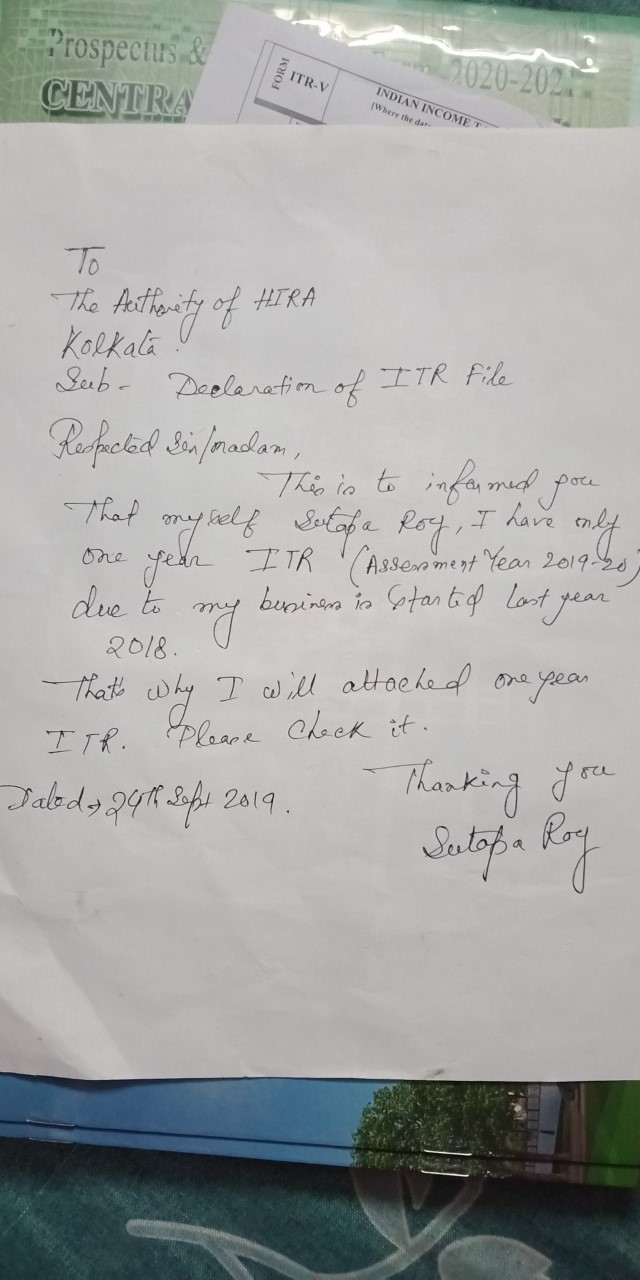 Prospectus &
2020-202
CENTRA
FORM
ITR-V
INDIAN INCOME T
[Where the data
To
The Authority of HIRA
Kolkata.
Sub - Declaration of ITR File
Respected Sir/madam,
This is to informed you
That myself Sutapa Roy, I have only
one year ITR (Assessment Year 2019-20)
due to my business is started last year
2018.
That's why I will attached one year
ITR. Please Check it.
Thanking you
Dated → 24th Sept 2019.
Sutapa Roy